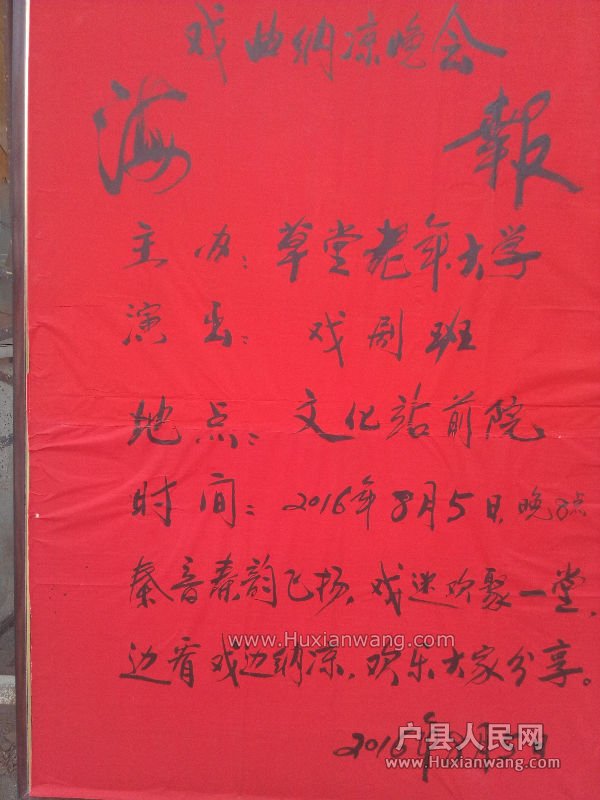 戏曲纳凉晚会
海報
主办：草堂老年大学
演出：戏剧班
地点：文化站前院
时间：2016年8月5日晚8点
秦音秦韵飞扬，戏迷欢聚一堂，
边看戏边纳凉，欢乐大家分享。
www.Huxianwang.com
2016年8月5日
户县人民网
www.Huxianwang.com